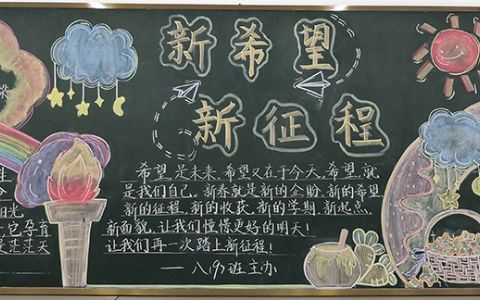 新希望
新征程
希望,是未来,希望又在于今天,希望,就
是我们自己。新春就是新的企盼,新的希望
新的征程,新的收获,新的学期,新起点,
新面貌,让我们憧憬更好的明天!
让我们再一次踏上新征程!
——八(9)班主办
生
分
阳光
,它孕育
是茫茫天